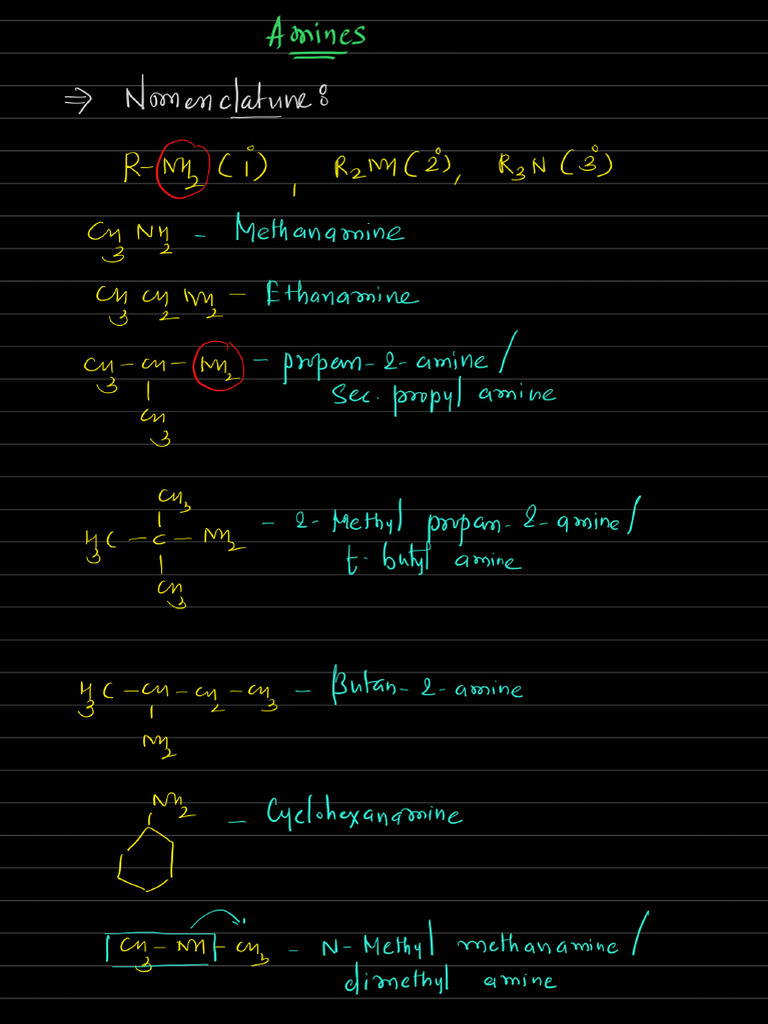 Amines
⇒ Nomenclature:
R-NH₂ (1°), R₂NH (2°), R₃N (3°)
CH₃ NH₂ - Methanamine
CH₃ CH₂ NH₂ - Ethanamine
CH₃ - CH - NH₂ - propan-2-amine /
|
CH₃
sec. propyl amine
CH₃
|
H₃C - C - NH₂ - 2-Methyl propan-2-amine /
|
CH₃
t-butyl amine
H₃C - CH - CH₂ - CH₃ - Butan-2-amine
|
NH₂
NH₂
- Cyclohexanamine
CH₃ - NH - CH₃ - N-Methyl methanamine /
dimethyl amine